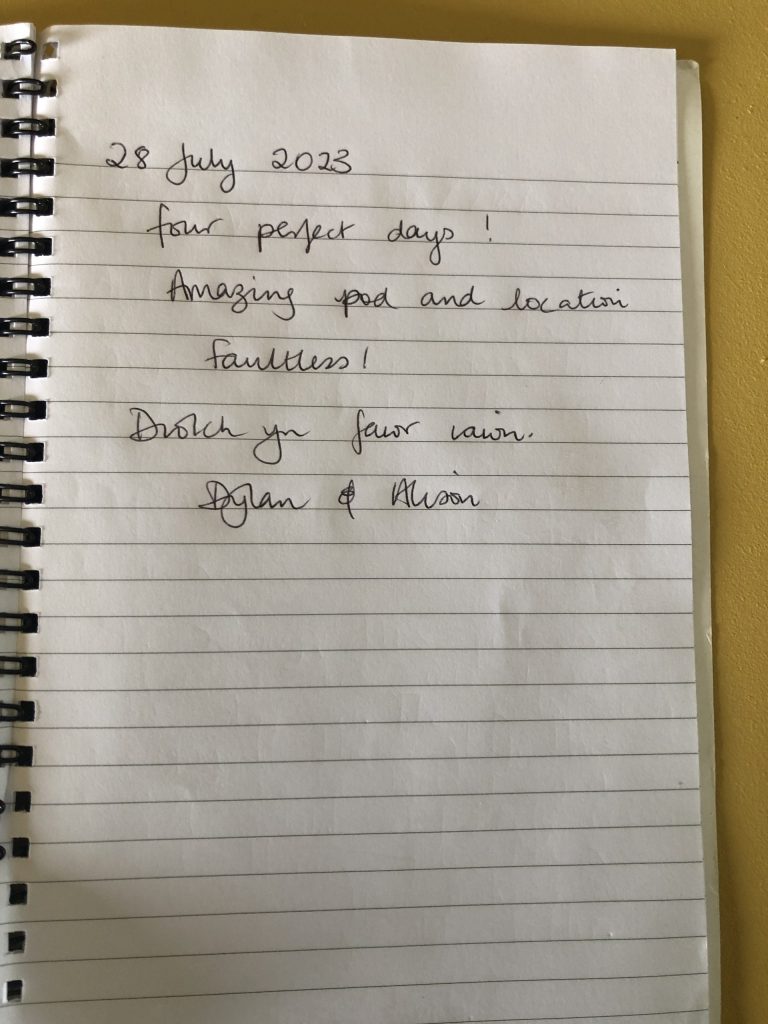 28 July 2023
four perfect days !
Amazing pod and location
faultless!
Diolch yn fawr iawn.
Dylan & Alison